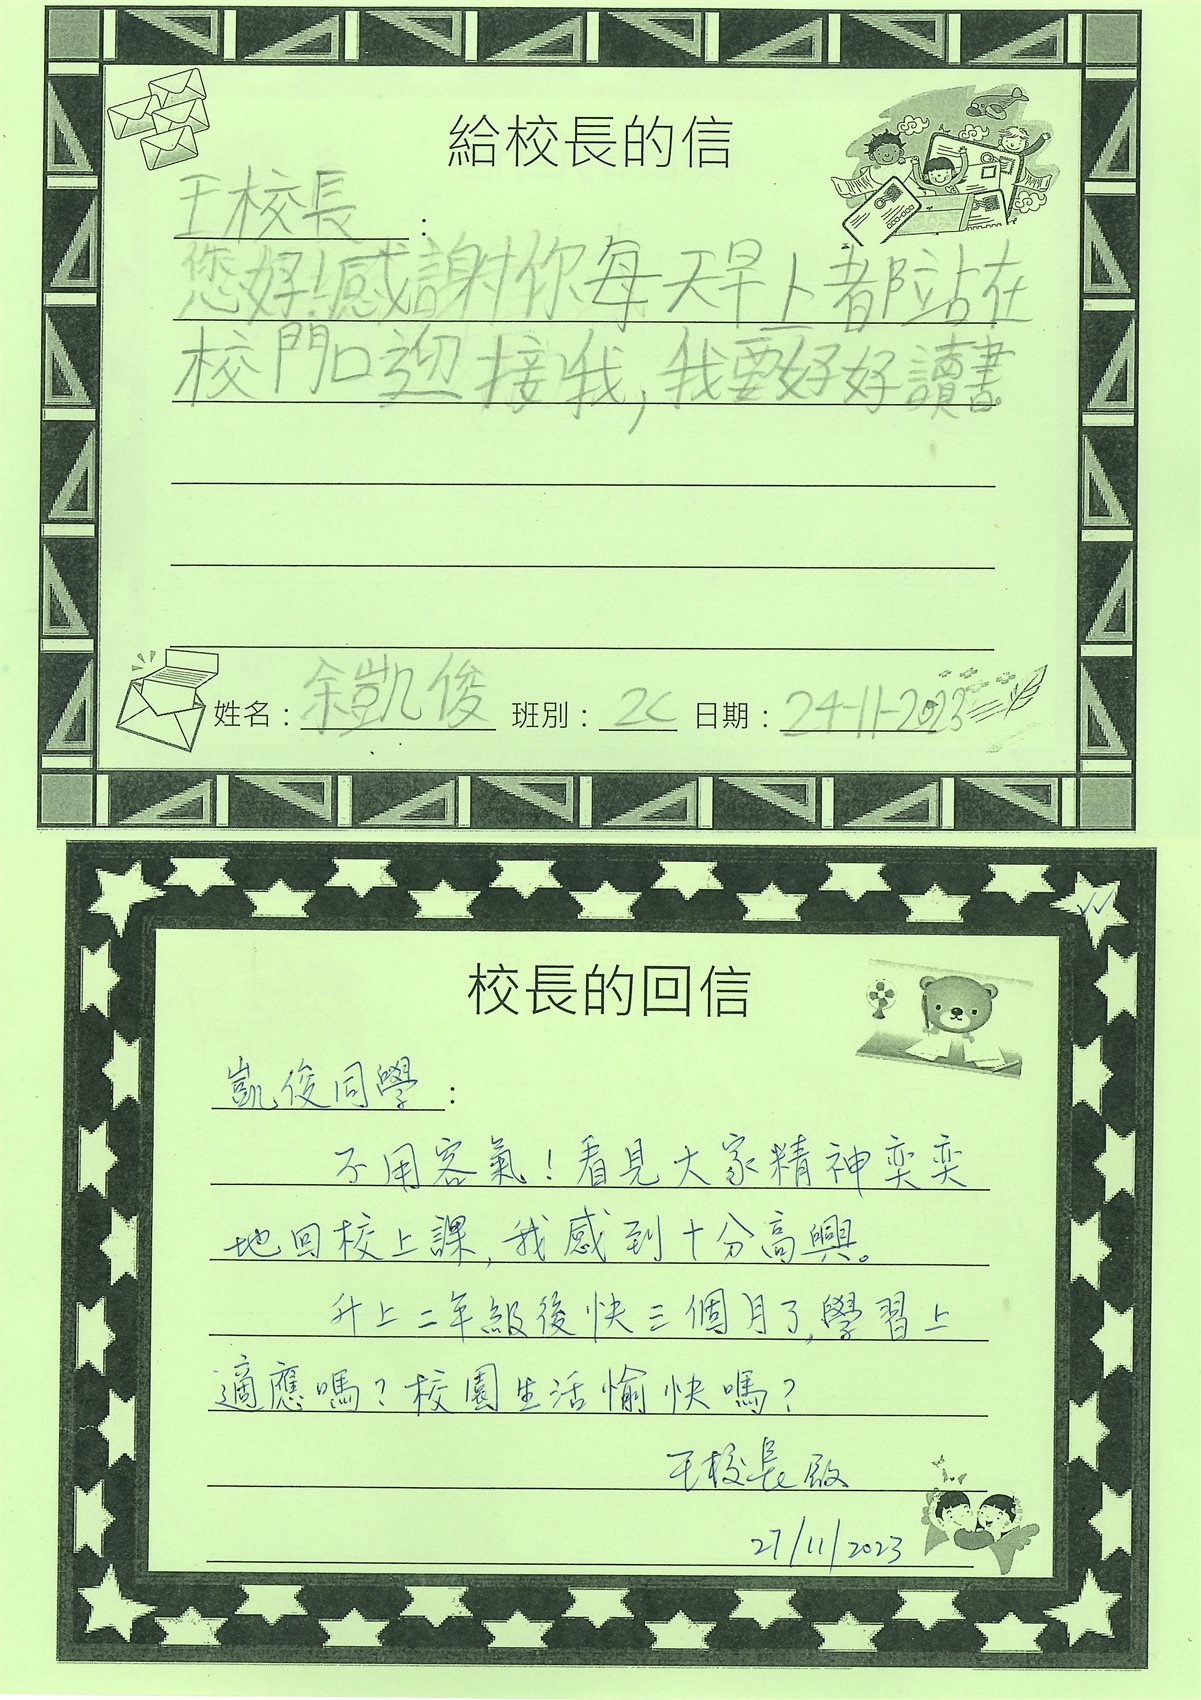 給校長的信
王校長:
您好!感謝你每天早上都站在
校門口迎接我,我要好好讀書。
姓名:余凱俊 班別:2C 日期:24-11-2023
校長的回信
凱俊同學:
不用客氣!看見大家精神奕奕
地回校上課,我感到十分高興。
升上二年級後快三個月了,學習上
適應嗎?校園生活愉快嗎?
王校長啟
27/11/2023